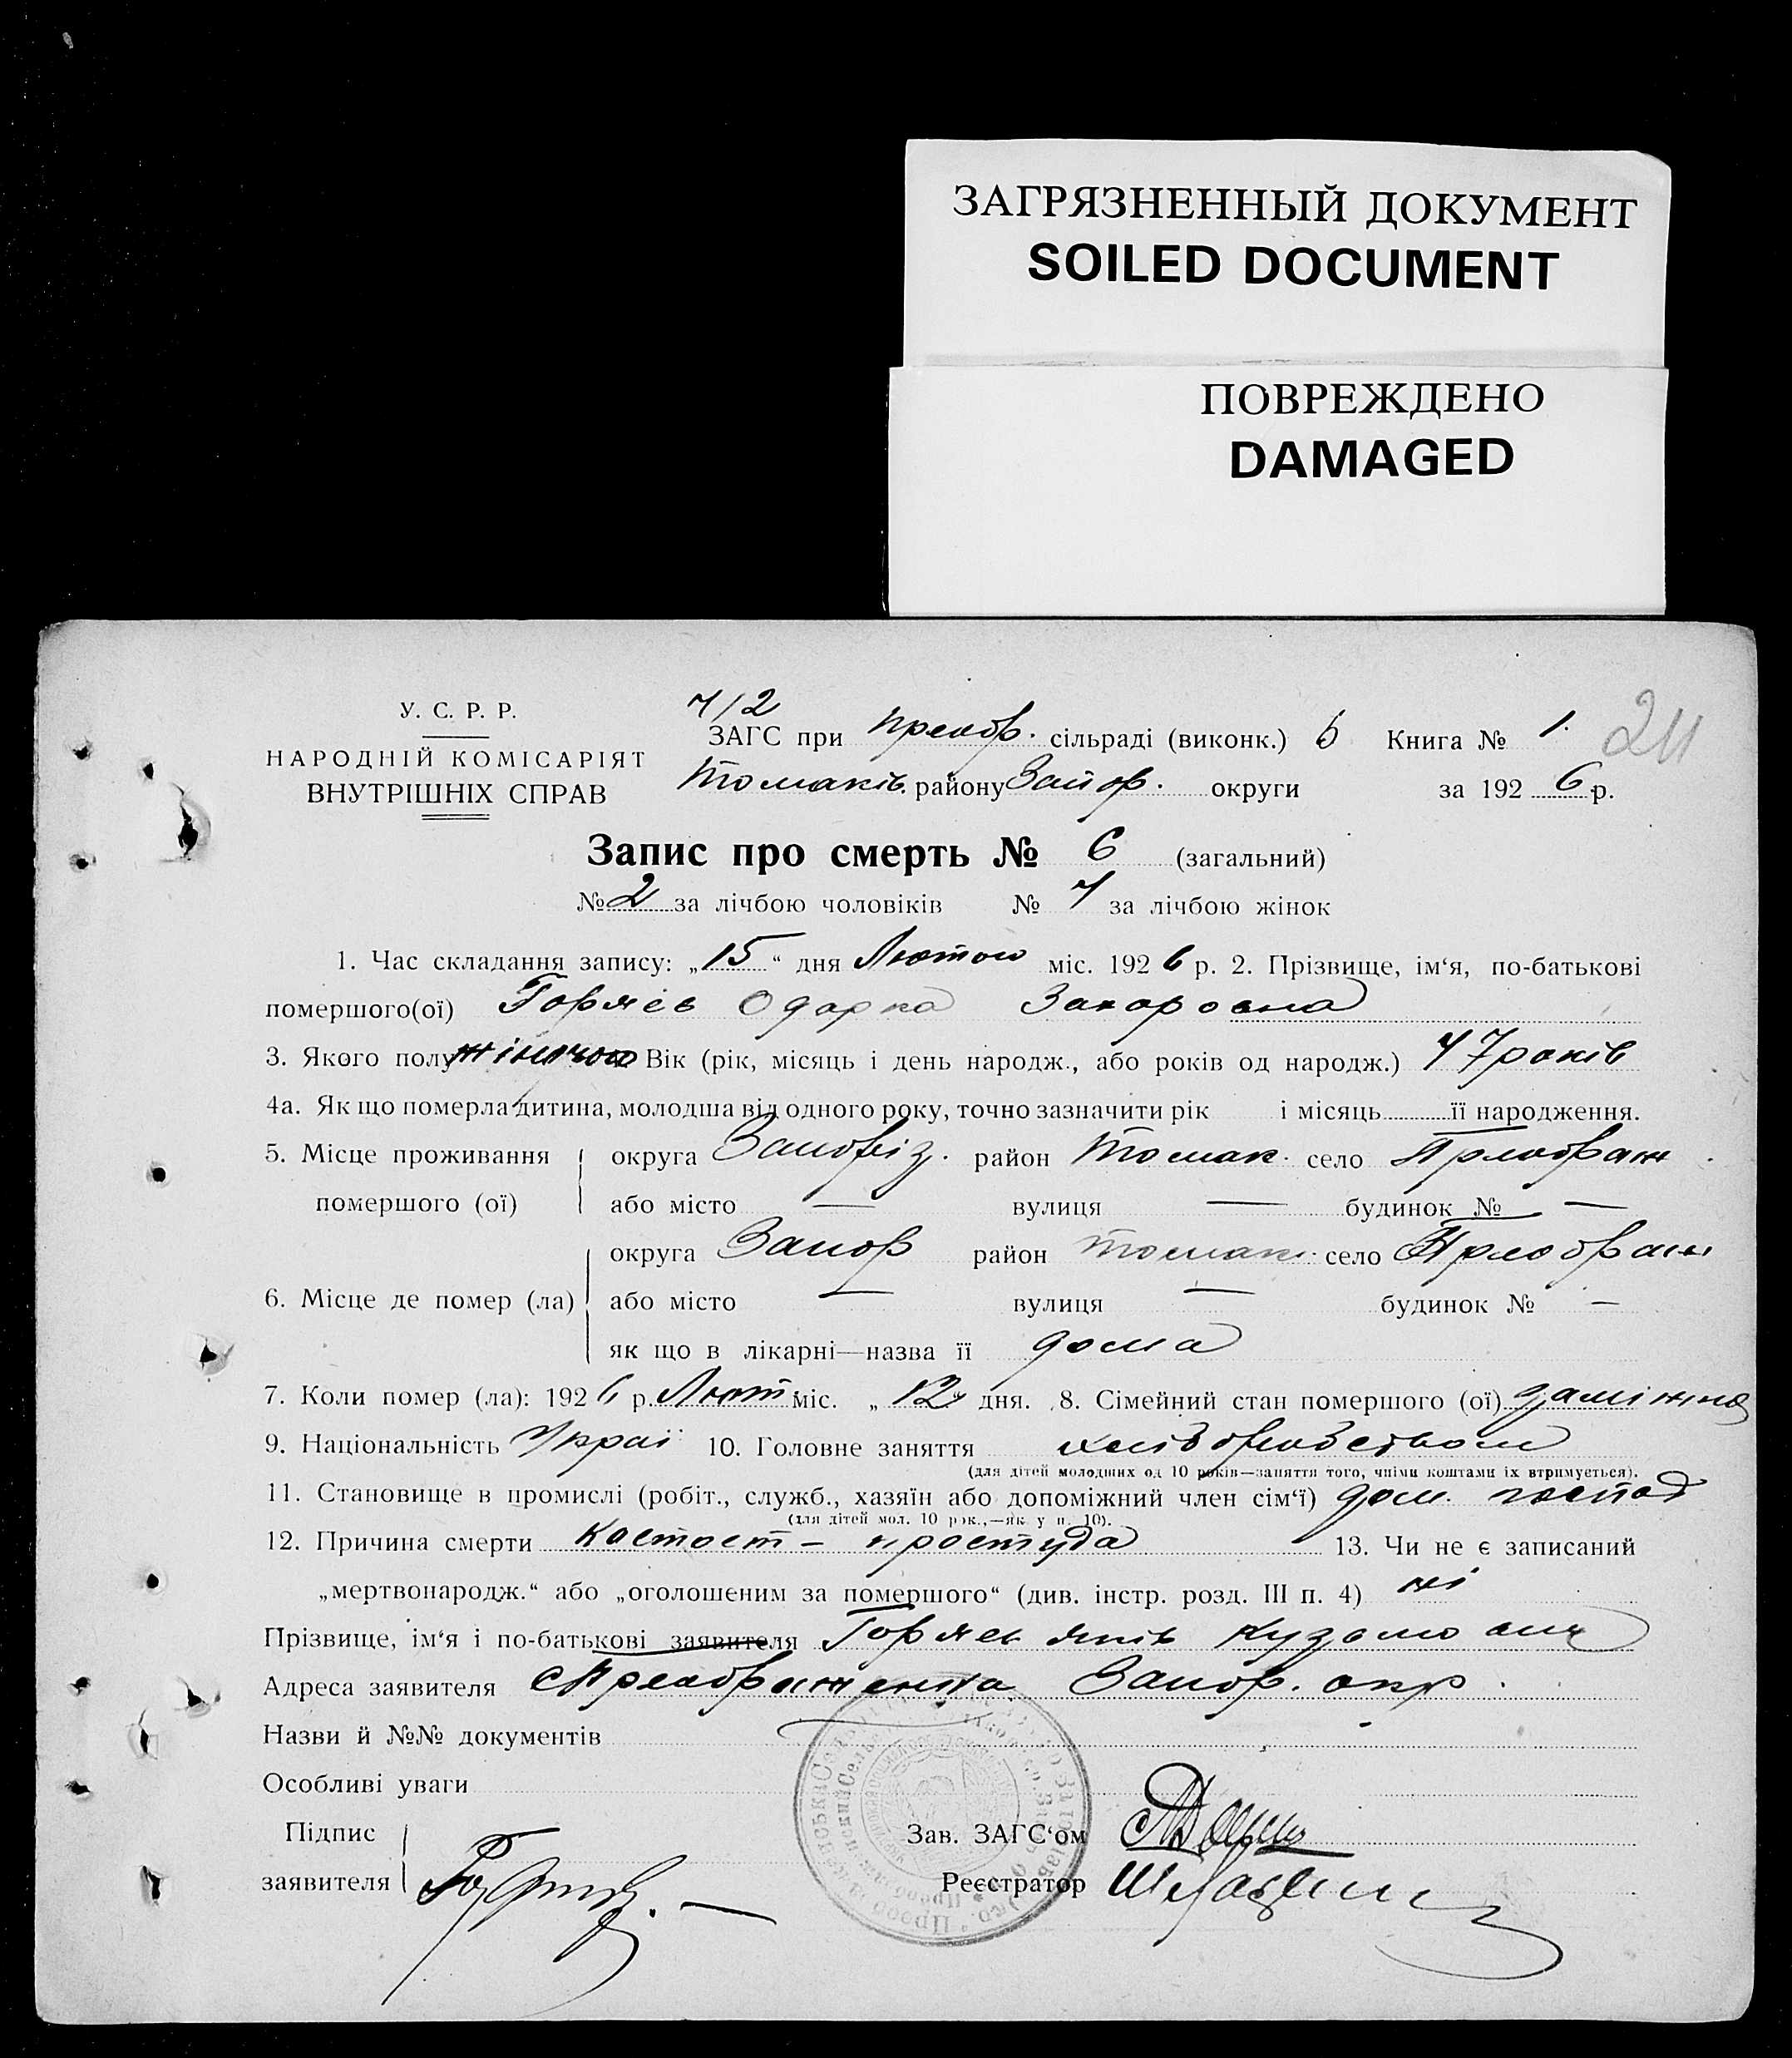 ЗАГРЯЗНЕННЫЙ ДОКУМЕНТ
SOILED DOCUMENT
ПОВРЕЖДЕНО
DAMAGED
У. С. Р. Р.
НАРОДНІЙ КОМІСАРІЯТ
ВНУТРІШНІХ СПРАВ
4/2
ЗАГС при Преобр. сільраді (виконк.) Книга № 1. 211
Томаків. району Запор. округи за 1926 р.
Запис про смерть № 6 (загальний)
№ 2 за лічбою чоловіків № 4 за лічбою жінок
1. Час складання запису: „15“ дня Лютого міс. 1926 р. 2. Прізвище, ім‘я, по-батькові
помершого(ої) Горяєв Одарка Захаровна
3. Якого полу жіночого Вік (рік, місяць і день народж., або років од народж.) 47 років
4а. Як що померла дитина, молодша від одного року, точно зазначити рік і місяць її народження.
5. Місце проживання округа Запоріз. район Томак. село Преображ.
помершого (ої) або місто — вулиця — будинок № —
округа Запор район Томак. село Преображ
6. Місце де помер (ла) або місто — вулиця — будинок № —
як що в лікарні—назва її дома
7. Коли помер (ла): 1926 р. Лют. міс. „12“ дня. 8. Сімейний стан помершого (ої) заміжня
9. Національність Украї 10. Головне заняття хліборобством
(для дітей молодших од 10 років—заняття того, чиїми коштами їх втримується).
11. Становище в промислі (робіт., служб., хазяїн або допоміжний член сім‘ї) дом. господ
(для дітей мол. 10 рок.,—як у п. 10).
12. Причина смерти простуда 13. Чи не є записаний
„мертвонародж.“ або „оголошеним за помершого“ (див. інстр. розд. III п. 4) ні
Прізвище, ім‘я і по-батькові заявителя Горяєв Яків Кузьмович
Адреса заявителя с Преображенка Запор. окр.
Назви й №№ документів
Особливі уваги
Підпис
заявителя
Зав. ЗАГС‘ом
Реєстратор